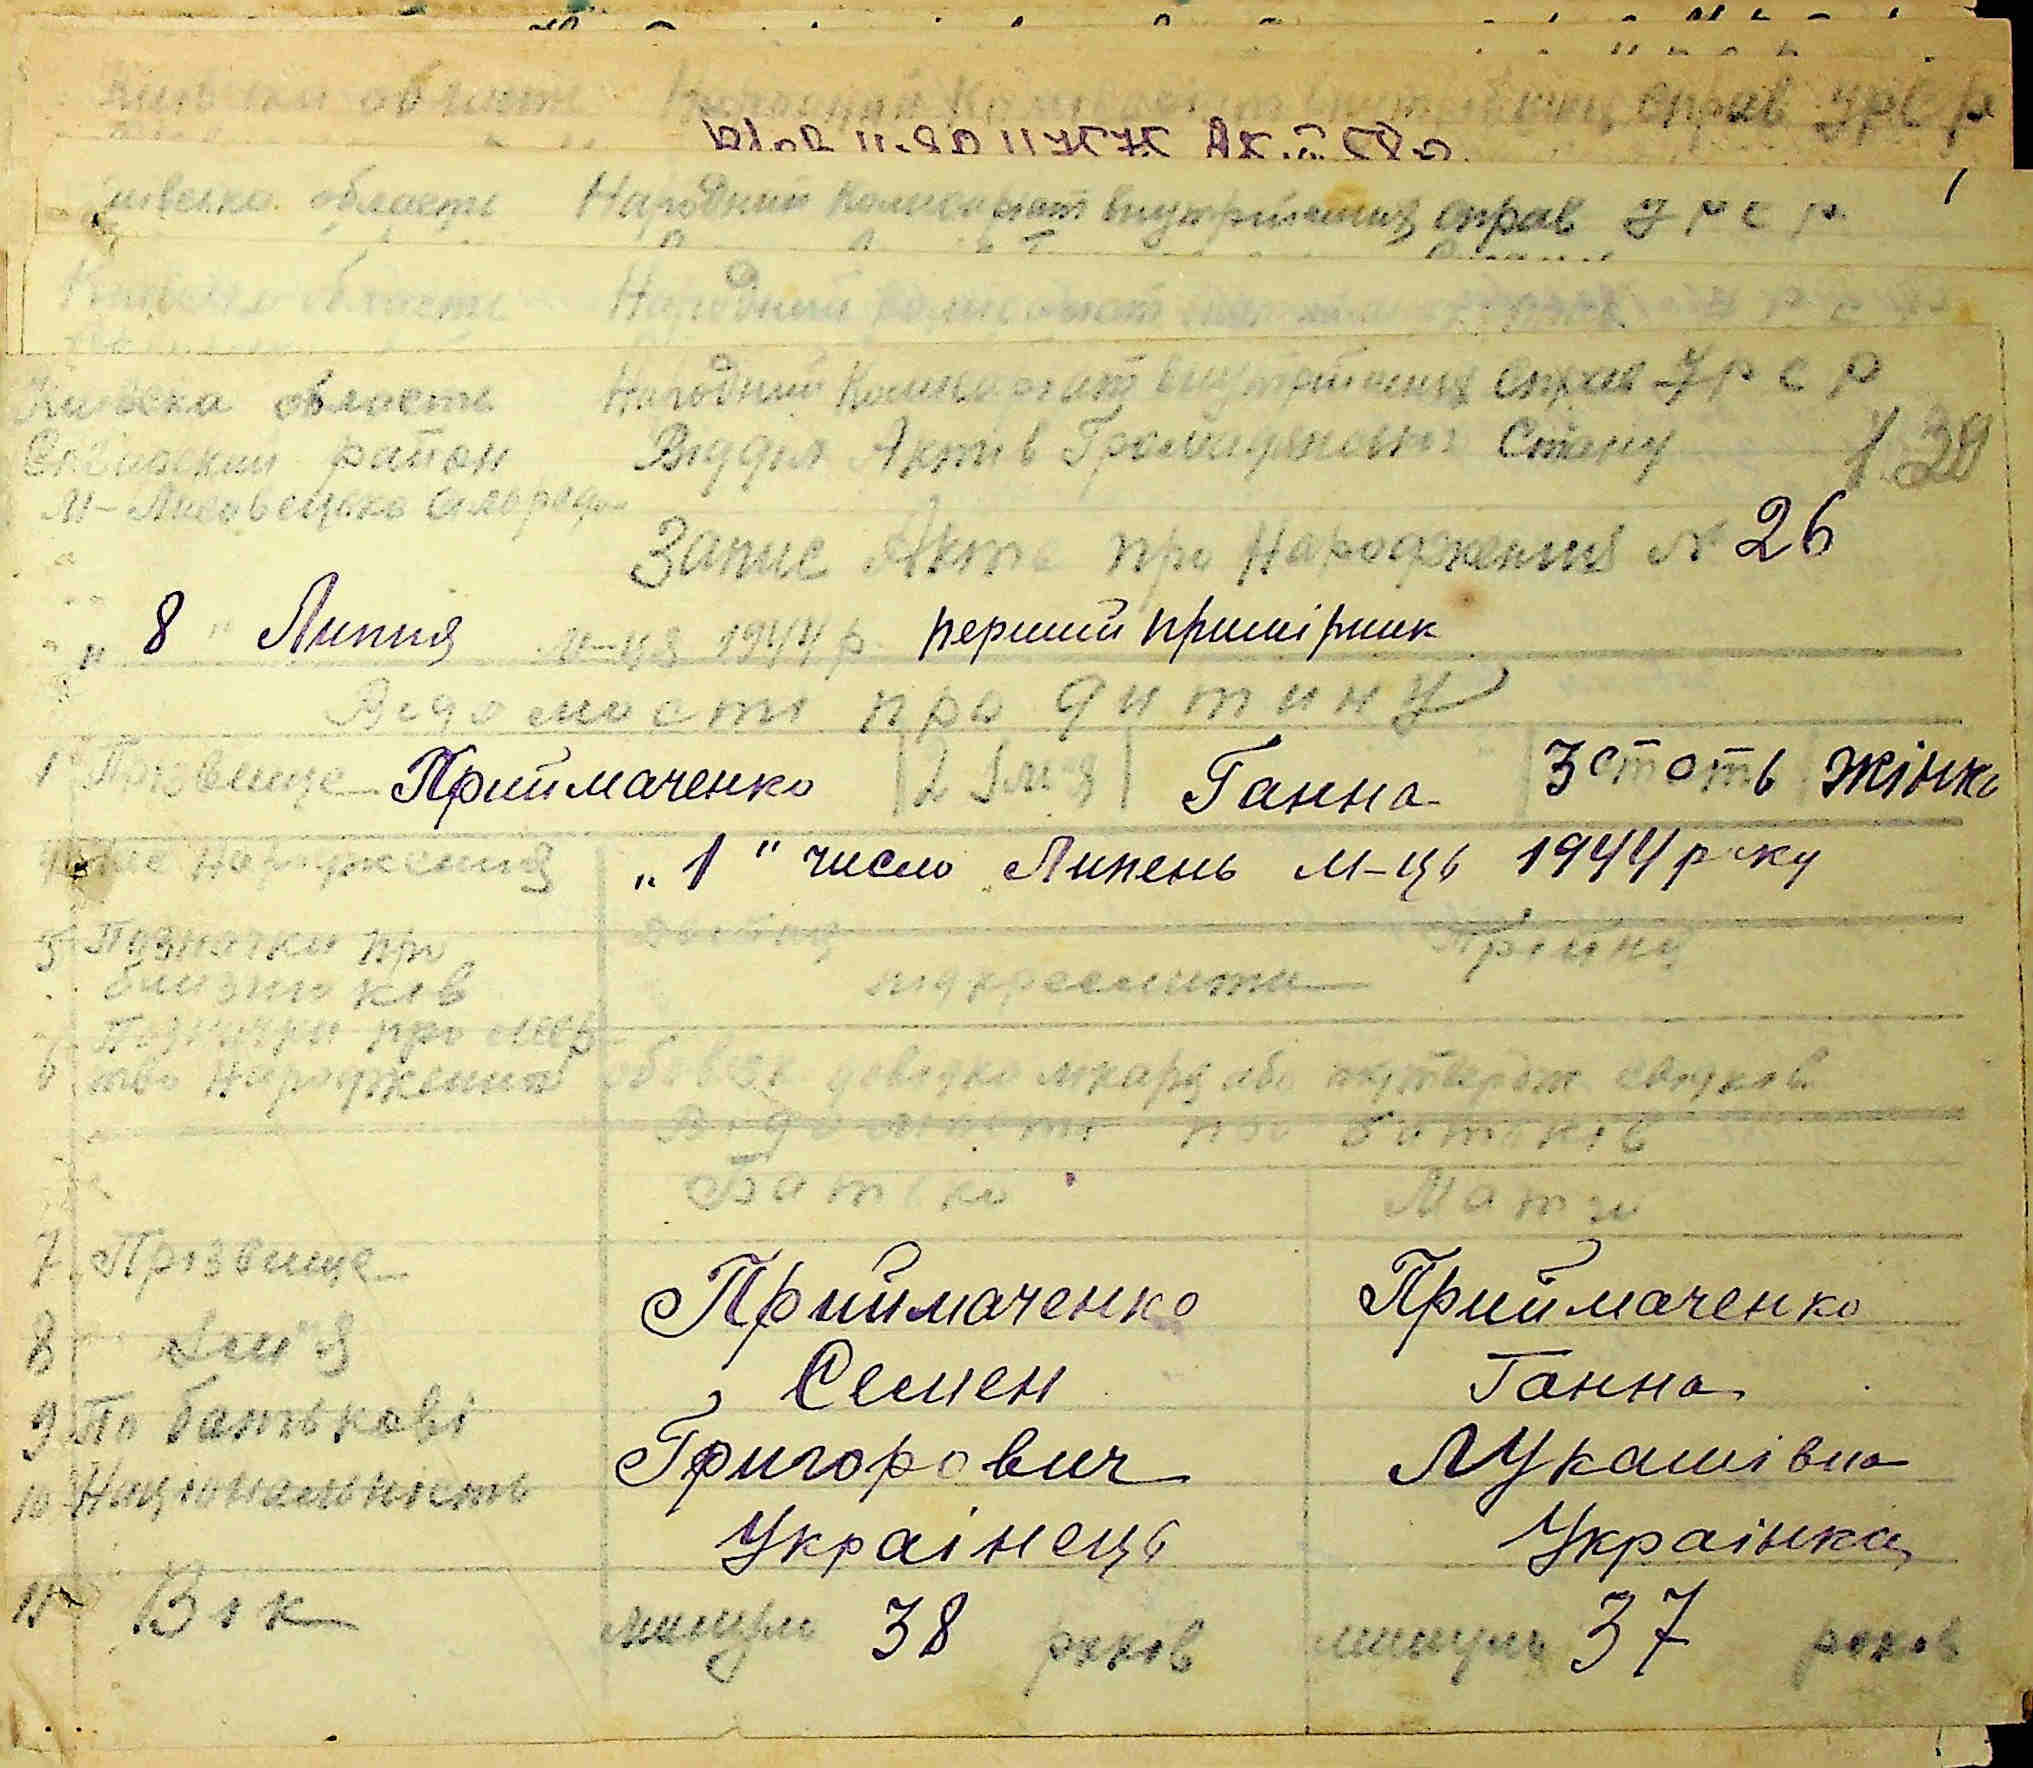 області Народний Комісаріат внутрішніх справ УРСР
області Народний Комісаріат внутрішніх справ УРСР
1
області Народний
Київска області Народний Комисаріат внутрішніх справ УРСР
район Відділ Актів Громадянського Стану
М-Лисовецька сілорада
Запис Акта про Народження № 26
„ 8 " Липня м-ця 1944 р. перший примірник
Відомости про дитину
1 Прізвище Приймаченко 2 Імъя Ганна 3 стать жінка
народження „ 1 " число Липень м-ць 1944 року
5 Позначки про
близнюків
підкреслити
Трійну
6 Позначки про мер
тво народження обовяз довідка лікаря або свідків
Відомости про батьків
Батько Мати
7 Прізвище Приймаченко Приймаченко
8 Імъя Семен Ганна
9 По батькові Григорович Лукашівна
10 Національність Украінець Украінка
11 Вік минуло 38 років минуло 37 років